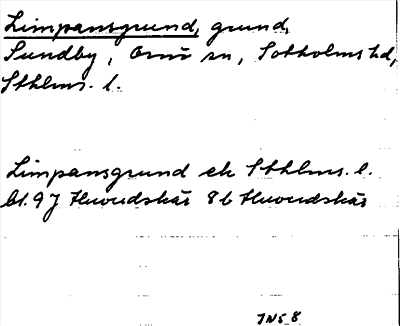 Limpansgrund, grund,
Sundby, Ornö sn, Sotholms hd,
Sthlms. l.
Limpansgrund ek Sthlms. l.
bl. 9J Huvudskär 8b Huvudskär
JNS 8